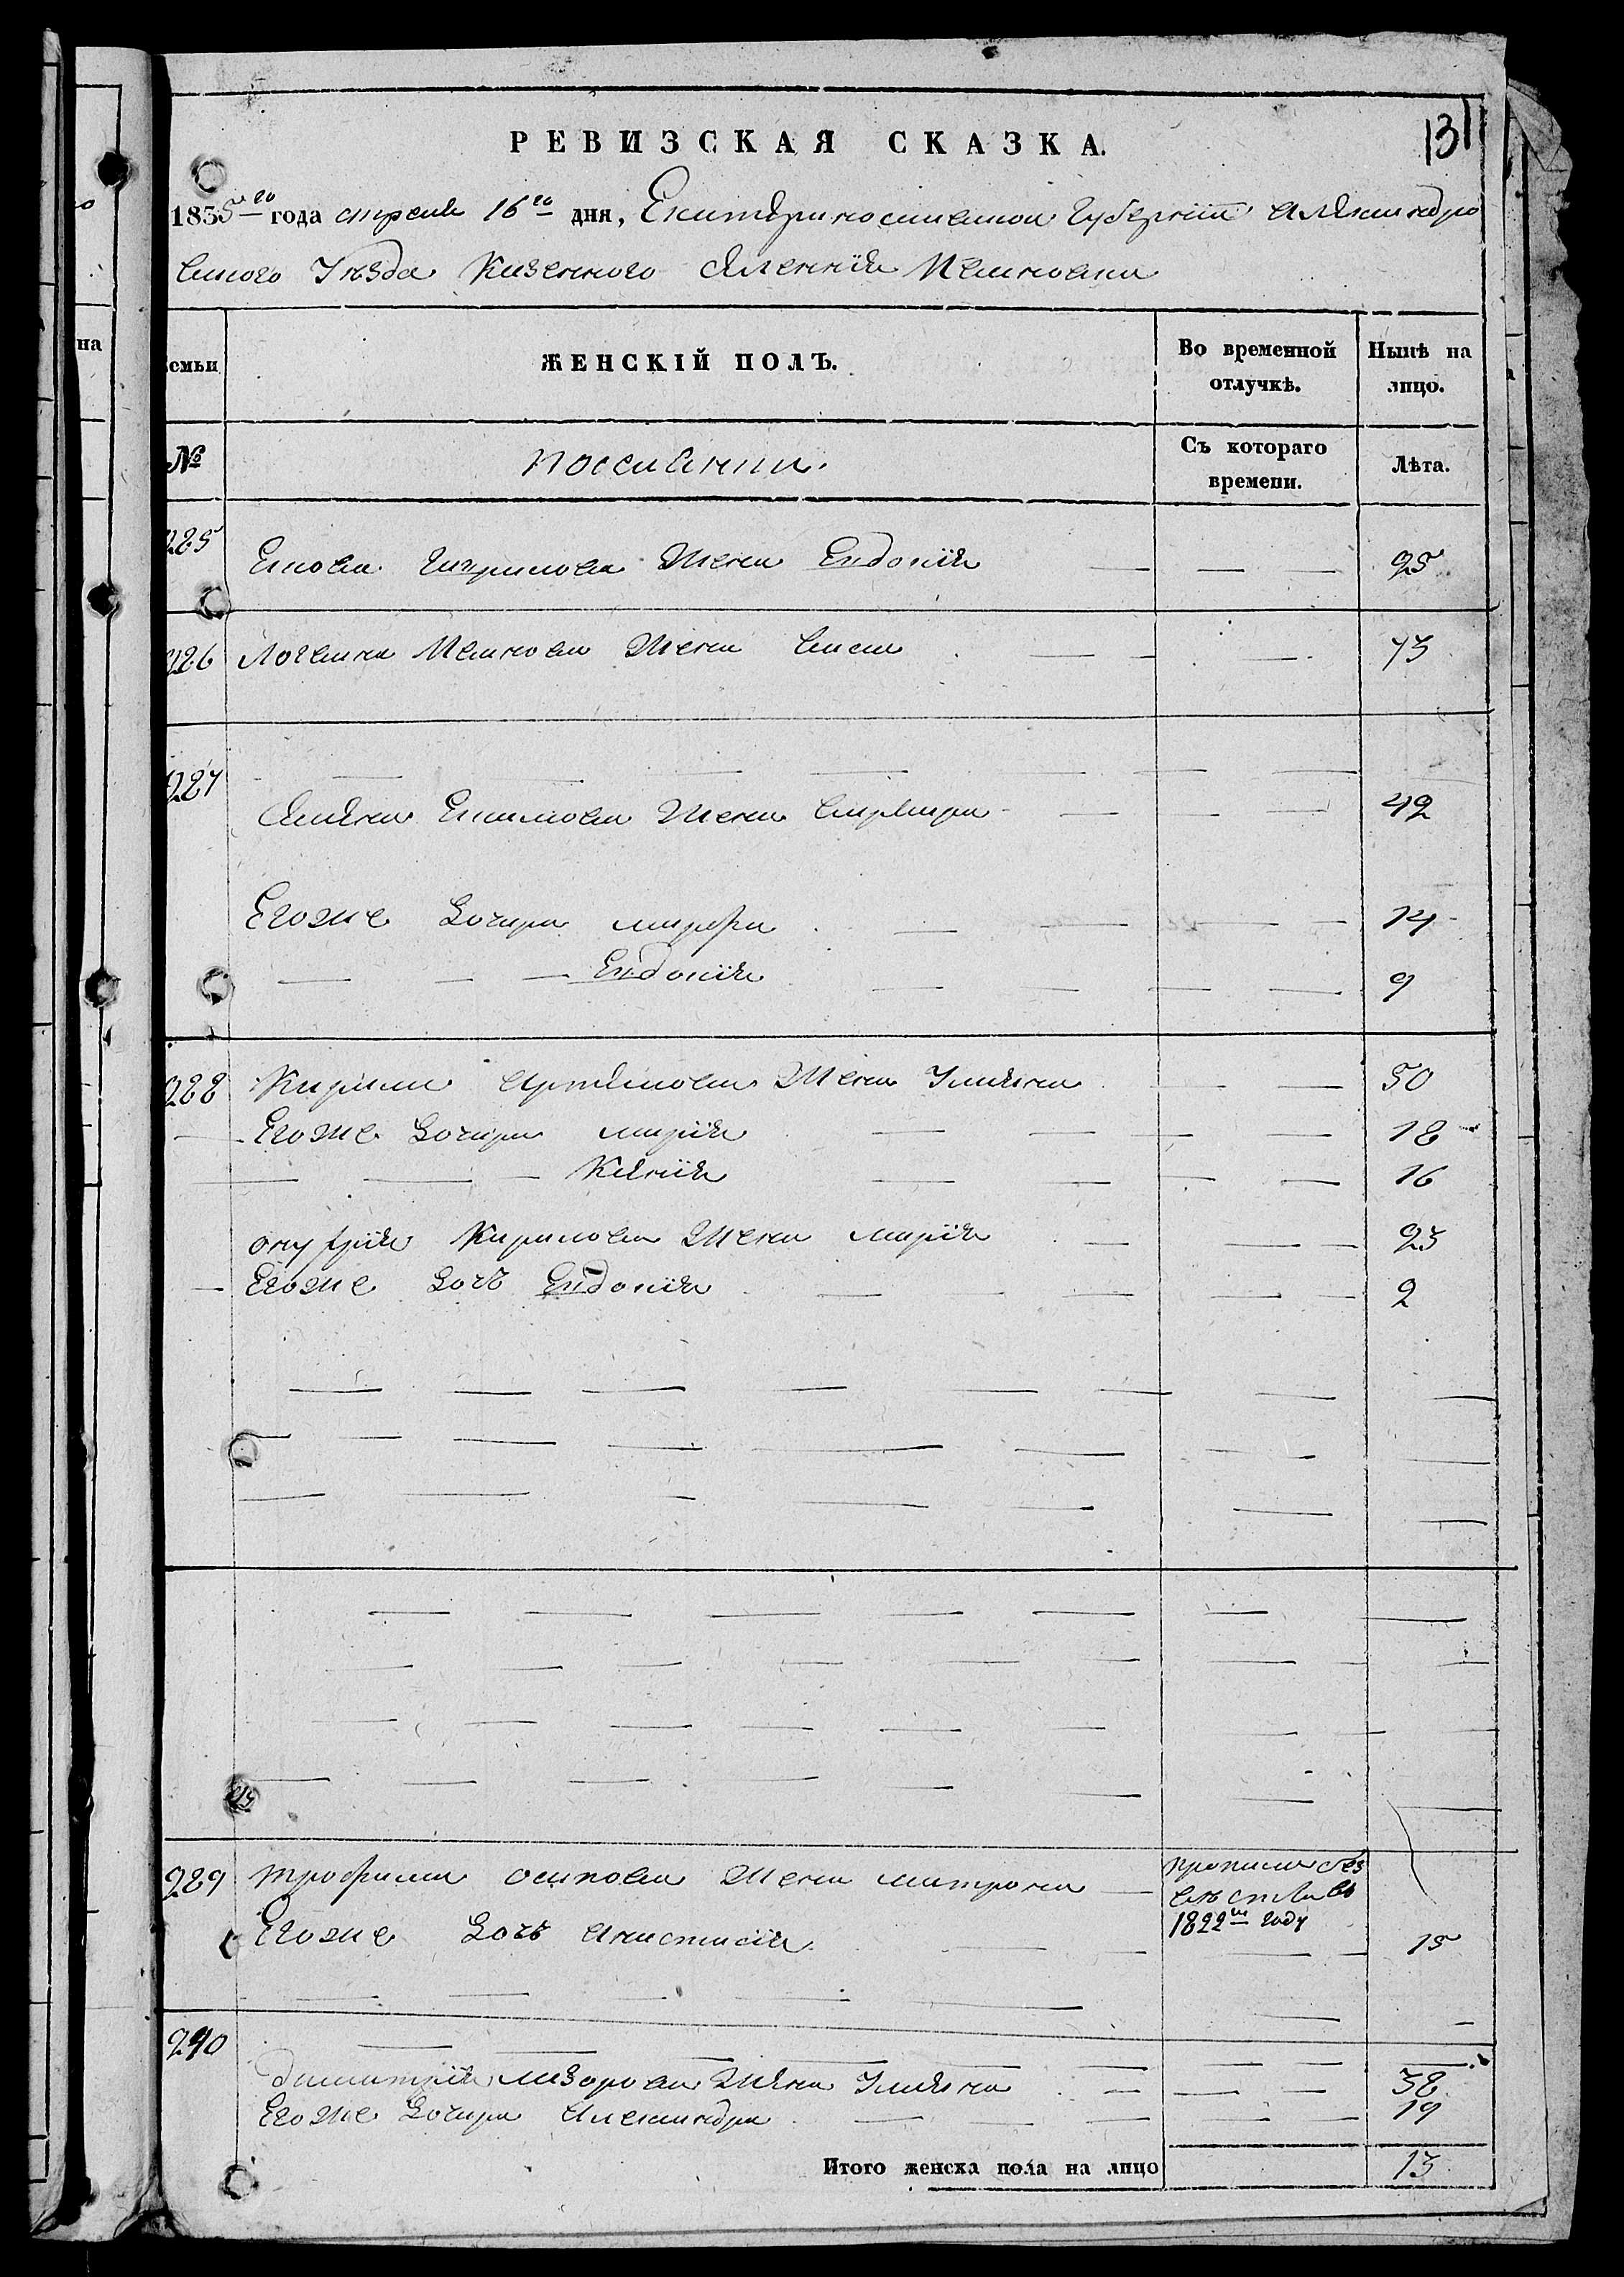 131
РЕВИЗСКАЯ СКАЗКА.
1835го года апреля 16го дня, Екатеринославской Губернiи Александро
вского Уѣзда Казенного Селенiя
на
Семьи
ЖЕНСКIЙ ПОЛЪ.
Во временной отлучкѣ.
Нынѣ на лицо.
№
Съ котораго времени.
Лѣта.
285 Гаврилова жена Евдокiя 25
286 Жена 73
287
Екимова жена 42
Егоже дочери Марфа 14
Евдокiя 9
288 Кирила Артемова жена Ульяна 50
Егоже дочери Марiя 18
Ксенiя 16
Онуфрiя Кирилова жена Марiя 23
Егоже дочь Евдокiя 2
289 Трофима Осипова жена Матрона
пропала без
вѣсти въ
1822м году
Егоже дочь Анастасiя 15
290
Димитрiя жена Ульяна 38
Егоже дочери Александра 19
Итого женска пола на лицо 13